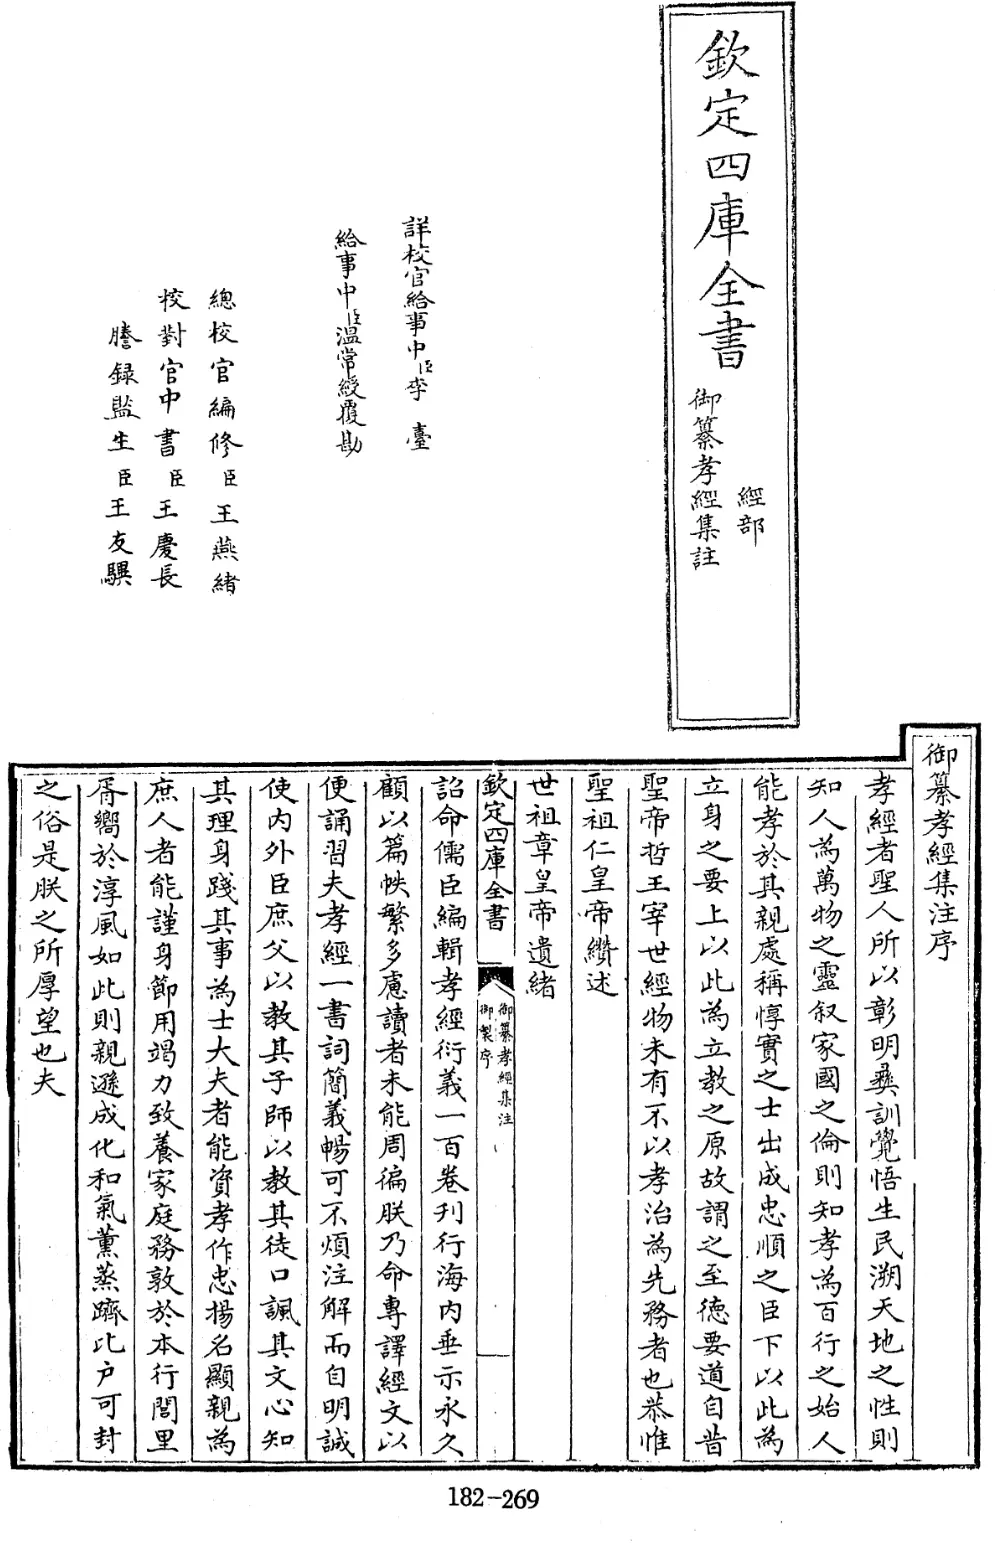 欽定四庫全書
經部
御纂孝經集註
詳校官給事中臣李臺
給事中臣温常綬覆勘
總校官編修臣王燕緒
校對官中書臣王慶長
謄録監生臣王友騏
御纂孝經集注序
孝經者聖人所以彰明彝訓覺悟生民溯天地之性則
知人為萬物之靈叙家國之倫則知孝為百行之始人
能孝於其親處稱惇實之士出成忠順之臣下以此為
立身之要上以此為立教之原故謂之至德要道自昔
聖帝哲王宰世經物未有不以孝治為先務者也恭惟
聖祖仁皇帝纘述
世祖章皇帝遺緒
欽定四庫全書
御纂孝經集注
御製序
一
詔命儒臣編輯孝經衍義一百卷刋行海内垂示永久
顧以篇帙繁多慮讀者未能周徧朕乃命專譯經文以
便誦習夫孝經一書詞簡義暢可不煩注解而自明誠
使内外臣庶父以教其子師以教其徒口諷其文心知
其理身踐其事為士大夫者能資孝作忠揚名顯親為
庶人者能謹身節用竭力致養家庭務敦於本行閭里
胥嚮於淳風如此則親遜成化和氣薰蒸躋比户可封
之俗是朕之所厚望也夫
182-269